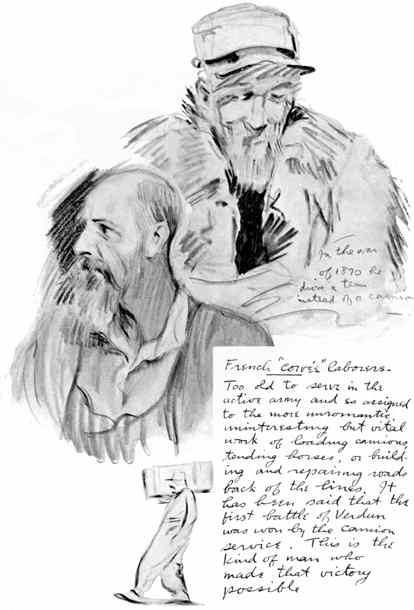 In the war
of 1870 he
drove a team
instead of a camion
French "corvée" laborers.
Too old to serve in the
active army and so assigned
to the more unromantic,
uninteresting but vital
work of loading camions
tending horses, or build-
ing and repairing roads
back of the lines. It
has been said that the
first battle of Verdun
was won by the camion
service. This is the
kind of man who
made that victory
possible